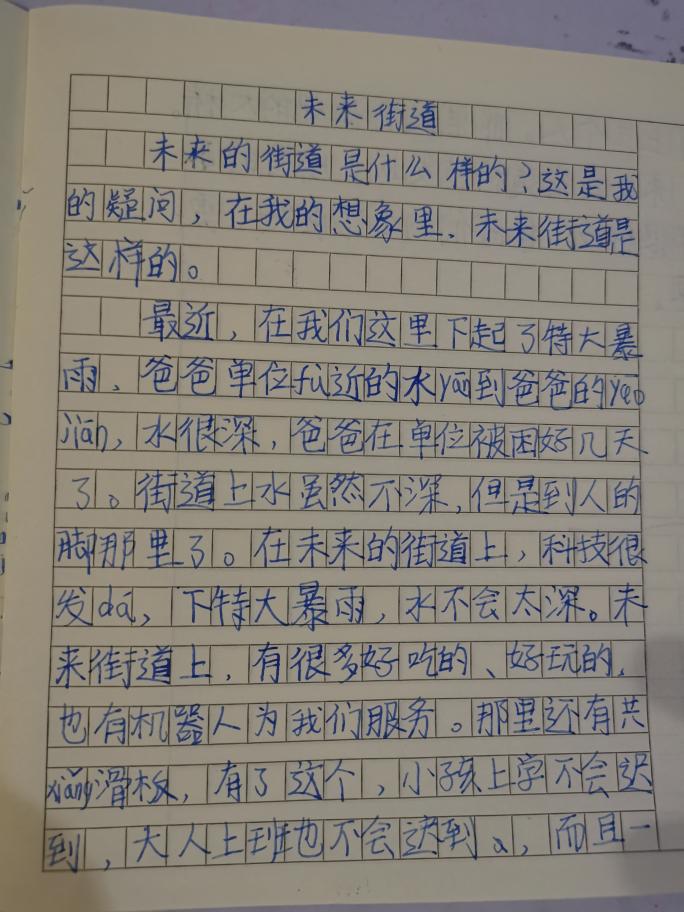 未来街道
未来的街道是什么样的？这是我
的疑问，在我的想象里，未来街道是
这样的。
最近，在我们这里下起了特大暴
雨，爸爸单位fù近的水yān到爸爸的yāo
jiān，水很深，爸爸在单位被困好几天
了。街道上水虽然不深，但是到人的
脚那里了。在未来的街道上，科技很
发dá，下特大暴雨，水不会太深。未
来街道上，有很多好吃的、好玩的，
也有机器人为我们服务。那里还有共
xiǎng滑板，有了这个，小孩上学不会迟
到，大人上班也不会迟到a，而且一